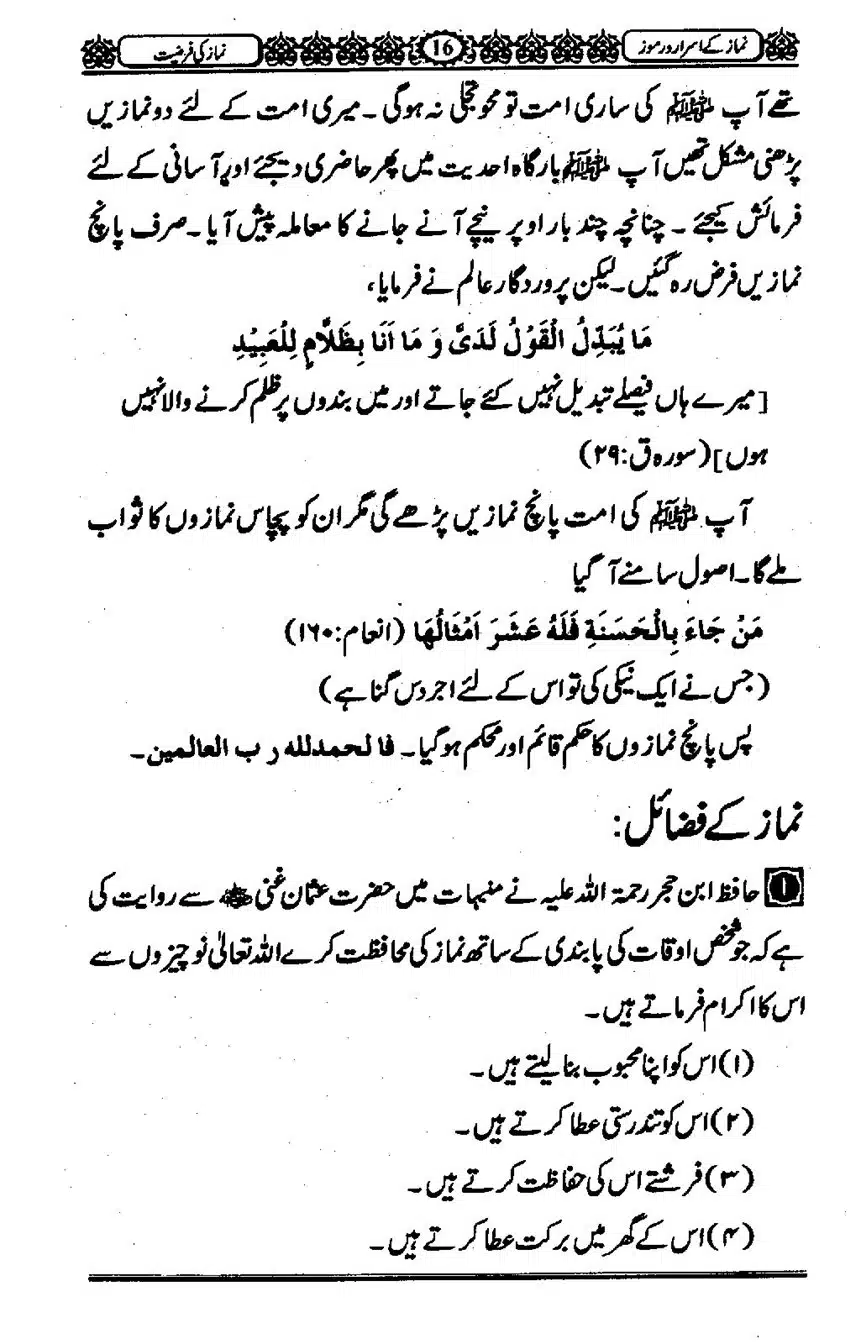 نماز کے اسرار و رموز 16 نماز کی فرضیت
تھے آپ ﷺ کی ساری امت تو محو تجلی نہ ہوگی۔ میری امت کے لئے دو نمازیں
پڑھنی مشکل تھیں آپ ﷺ بارگاہ احدیت میں پھر حاضری دیجئے اور آسانی کے لئے
فرمائش کیجئے ۔ چنانچہ چند بار اوپر نیچے آنے جانے کا معاملہ پیش آیا۔ صرف پانچ
نمازیں فرض رہ گئیں۔ لیکن پروردگار عالم نے فرمایا،
مَا يُبَدَّلُ الْقَوْلُ لَدَىَّ وَ مَا اَنَا بِظَلَّامٍ لِلْعَبِيْدِ
[میرے ہاں فیصلے تبدیل نہیں کئے جاتے اور میں بندوں پر ظلم کرنے والا نہیں
ہوں] (سورہ ق:۲۹)
آپ ﷺ کی امت پانچ نمازیں پڑھے گی مگر ان کو پچاس نمازوں کا ثواب
ملے گا۔ اصول سامنے آ گیا
مَنْ جَاءَ بِالْحَسَنَةِ فَلَهُ عَشَرَ اَمْثَالُهَا (انعام:۱۶۰)
(جس نے ایک نیکی کی تو اس کے لئے اجر دس گنا ہے)
پس پانچ نمازوں کا حکم قائم اور محکم ہو گیا۔ فالحمدلله رب العالمین۔
نماز کے فضائل:
۱ حافظ ابن حجر رحمۃ اللہ علیہ نے منبہات میں حضرت عثمان غنی ؓ سے روایت کی
ہے کہ جو شخص اوقات کی پابندی کے ساتھ نماز کی محافظت کرے اللہ تعالیٰ نو چیزوں سے
اس کا اکرام فرماتے ہیں۔
(۱) اس کو اپنا محبوب بنا لیتے ہیں۔
(۲) اس کو تندرستی عطا کرتے ہیں۔
(۳) فرشتے اس کی حفاظت کرتے ہیں۔
(۴) اس کے گھر میں برکت عطا کرتے ہیں۔